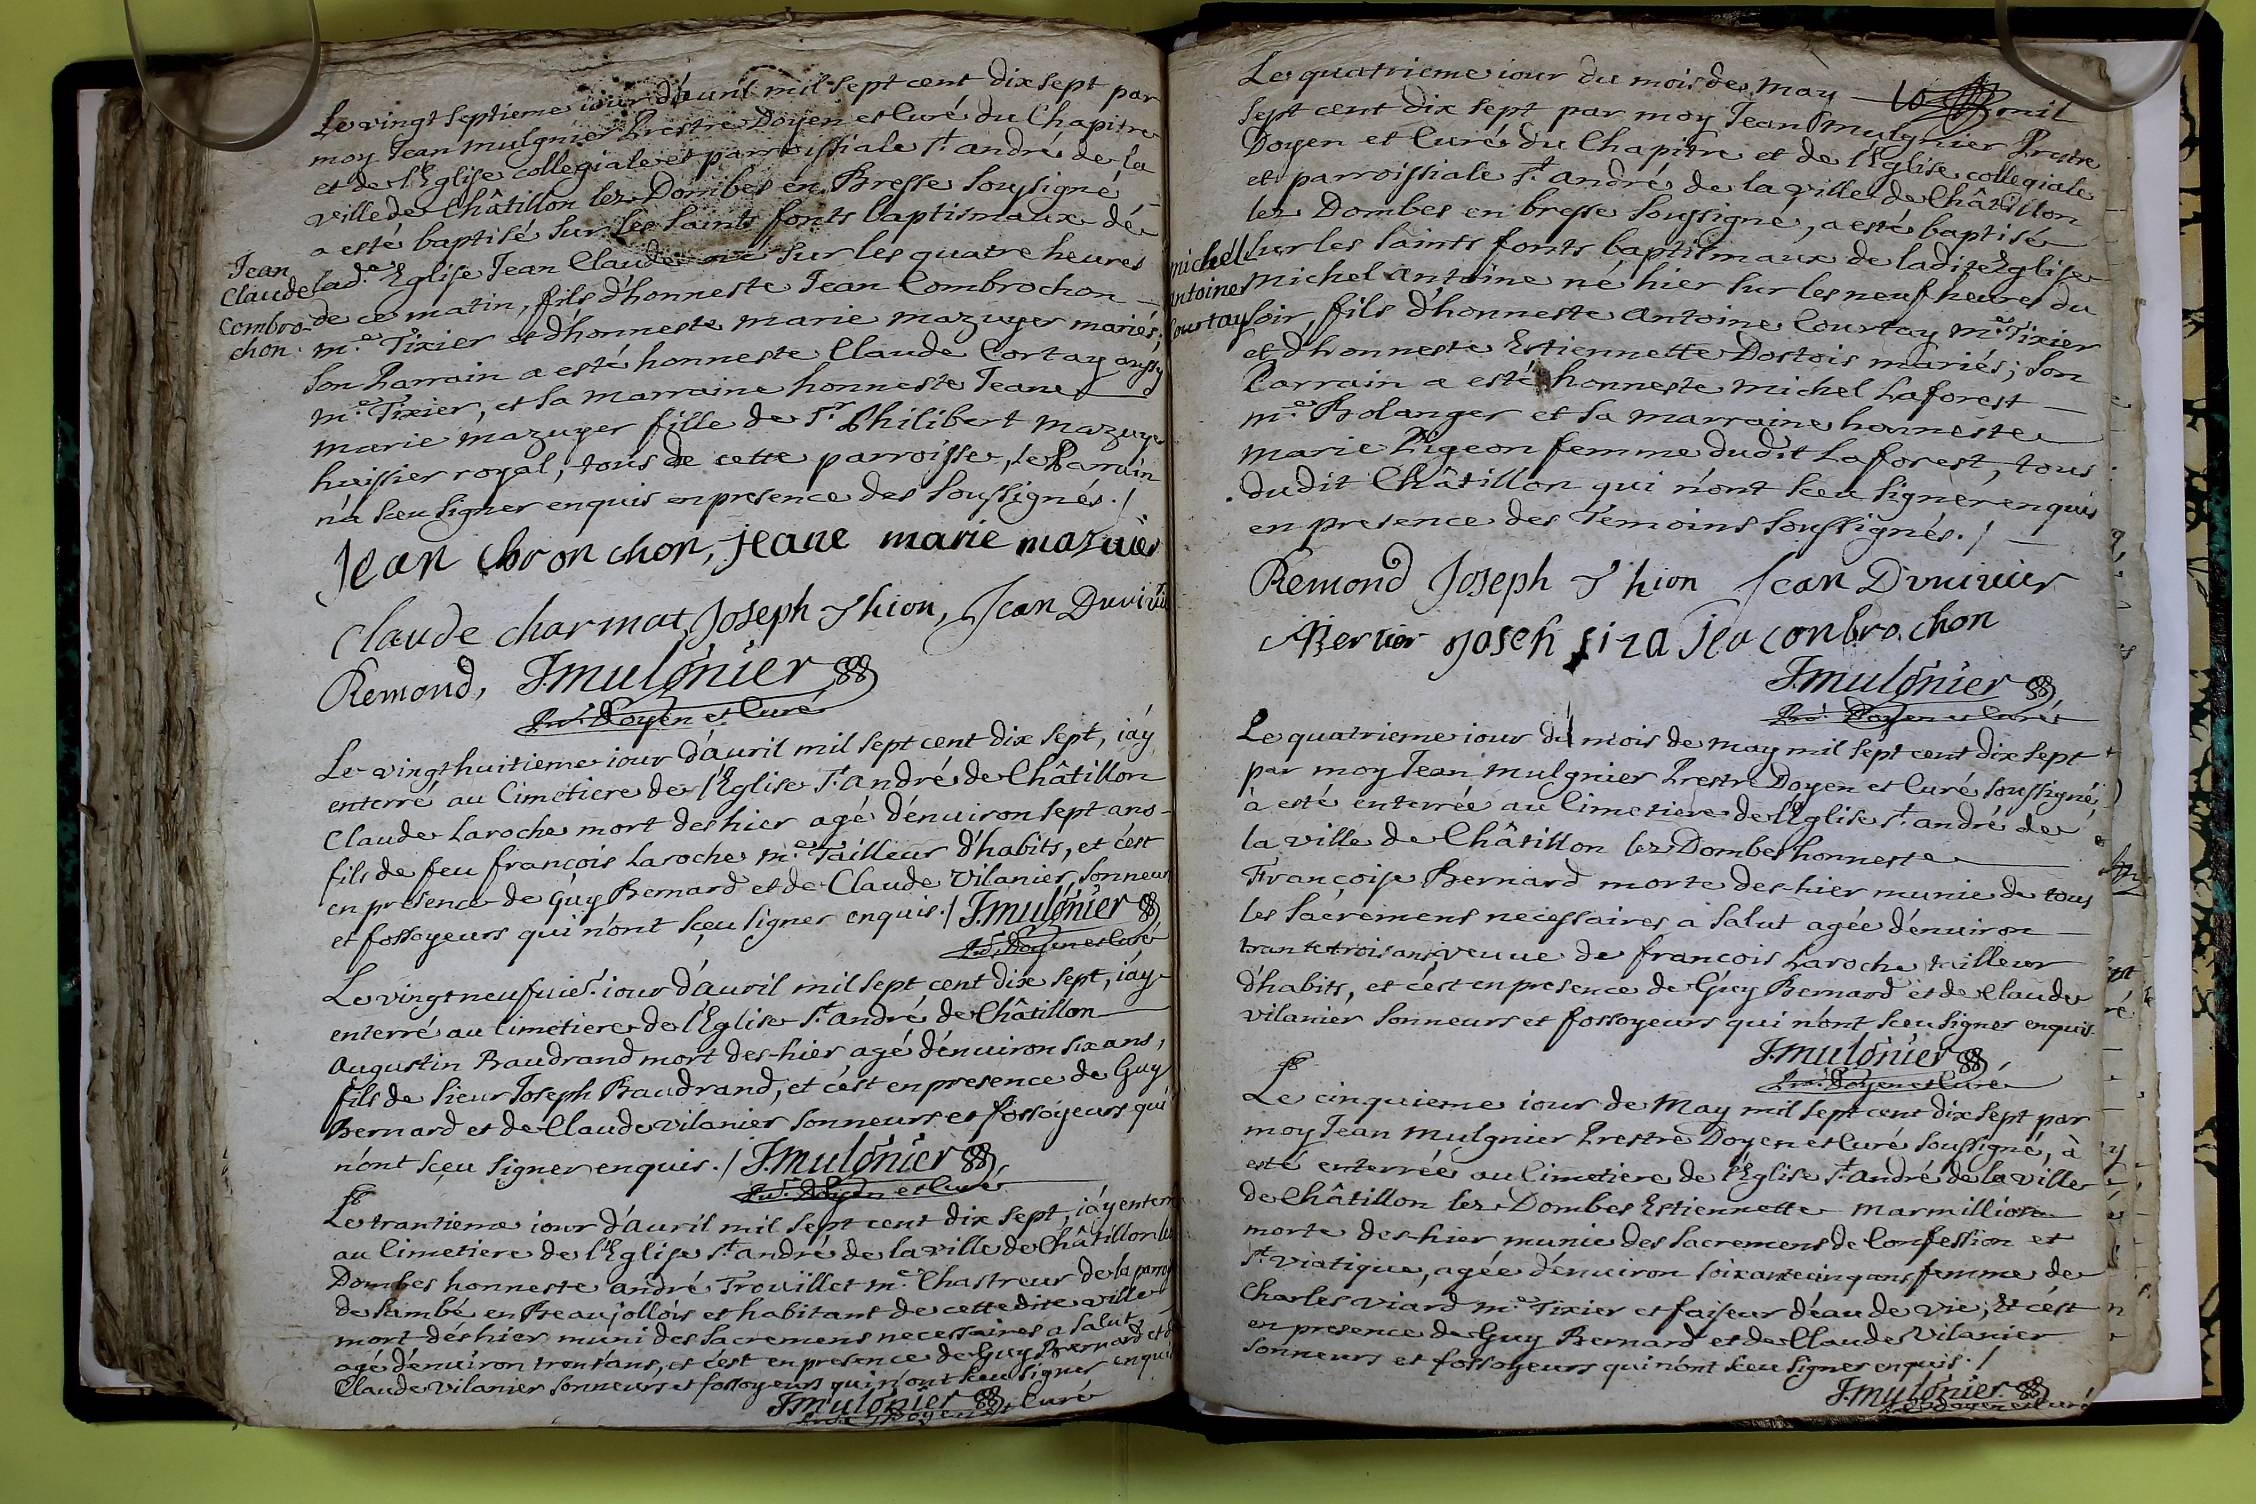 Le vingt septieme iour d'auril mil sept cent dix sept par
moy Jean mulgnier Prestre Doyen et Curé du Chapitre
et de l'Eglise collegiale et parroissiale St andré de la
ville de Châtillon lez Dombes en Bresse sousigné
a esté baptisé sur les saints fonts baptismaux de
lad.e Eglise Jean Claude né sur les quatre heures
de ce matin, fils d'honneste Jean Combrochon
m.e Tixier et d'honneste marie mazuyer mariés;
son Parrain a esté honneste Claude Cortay aussy
m.e Tixier, et sa marraine honneste Jeane
marie mazuyer fille de Sr Philibert mazuye
huissier royal, tous de cette parroisse, le Parrain
n'a sceu signer enquis en presence des soussignés. /
Jean
Claude
Combro-
chon.
Jean Cbronchon, jeane marie mazuier
Claude charmat, Joseph Thion, Jean Duvivie
Remond, J. mulgnier
Pre. Doyen et Curé
Le vingt huitieme iour d'auril mil sept cent dix sept, i'ay
enterré au Cimetiere de l'Eglise St andré de Châtillon
Claude Laroche mort des hier agé d'enuiron sept ans
fils de feu françois Laroche m.e Tailleur d'habits, et c'est
en presence de Guy Bernard et de Claude Vilanier sonneur
et fossoyeurs qui n'ont sceu signer enquis. / J. mulgnier
Pre. Doyen et Curé
Le vingt neufuie. iour d'auril mil sept cent dix sept, i'ay
enterré au Cimetiere de l'Eglise St andré de Châtillon
Augustin Baudrand mort des-hier agé d'enuiron six ans,
fils de sieur Joseph Baudrand, et c'est en presence de Guy
Bernard et de Claude vilanier sonneurs et fossoyeurs qui
n'ont sceu signer enquis. / J. mulgnier
Pre. Doyen et Curé
Le trantieme iour d'auril mil sept cent dix sept, i'ay enterré
au Cimetiere de l'Eglise St andré de la ville de Châtillon lez
Dombes honneste andré Trouillet m.e Chastreur de la parroi
de Lambé en Beaujollois et habitant de cette dite ville
mort dés hier muni des sacremens necessaires a salut
agé d'enuiron trent'ans, et c'est en presence de Guy Bernard et de
Claude Vilanier sonneurs et fossoyeurs qui n'ont sceu signer enquis
J. mulgnier
Pre. Doyen et Curé
Le quatrieme iour du mois de May mil
sept cent dix sept par moy Jean Mulgnier Prestre
Doyen et Curé du Chapitre et de l'Eglise collegiale
et parroissiale St andré de la ville de Châtillon
lez Dombes en bresse soussigné, a esté baptisé
sur les saints fonts baptismaux de ladite Eglise
Michel Antoine né hier sur les neuf heures du
soir, fils d'honneste Antoine Courtay m.e Tixier
et d'honneste Estiennette Dostois mariés; son
Parrain a esté honneste Michel Laforest
m.e Bolanger et sa marraine honneste
Marie Pigeon femme dudit Laforest, tous
dudit Châtillon qui n'ont sceu signer enquis
en presence des Temoins soussignés. /
michel
antoine
Courtay
Remond Joseph Thion Jean Duvivier
Mervier Joseh fiza Jea conbrochon
J. mulgnier
Pre. Doyen et Curé
Le quatrieme iour du mois de may mil sept cent dix sept
par moy Jean mulgnier Prestre Doyen et Curé soussigné,
à esté enterrée au Cimetiere de l'Eglise St andré de
la ville de Châtillon lez Dombes honneste
Françoise Bernard morte des-hier munie de tous
les sacremens necessaires a salut agée d'enuiron
trante trois ans, veuue de françois Laroche tailleur
d'habits, et c'est en presence de Guy Bernard et de Claude
vilanier sonneurs et fossoyeurs qui n'ont sceu signer enquis.
J. mulgnier
Pre. Doyen et Curé
Le cinquieme iour de May mil sept cent dix sept par
moy Jean mulgnier Prestre Doyen et Curé soussigné, à
esté enterrée au Cimetiere de l'Eglise St andré de la ville
de Châtillon lez Dombes Estiennette Marmillion
morte des-hier munie des sacremens de Confession et
St Viatique, agée d'enuiron soixante cinq ans femme de
Charles Viard m.e Tixier et faiseur d'eau de vie; Et c'est
en presence de Guy Bernard et de Claude Vilanier
sonneurs et fossoyeurs qui n'ont sceu signer enquis. /
J. mulgnier
Pre. Doyen et Curé